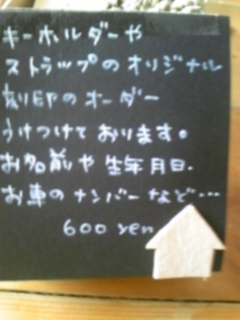 キーホルダーや
ストラップのオリジナル
刻印のオーダー
うけつけております。
お名前や生年月日.
お車のナンバーなど…
600 yen